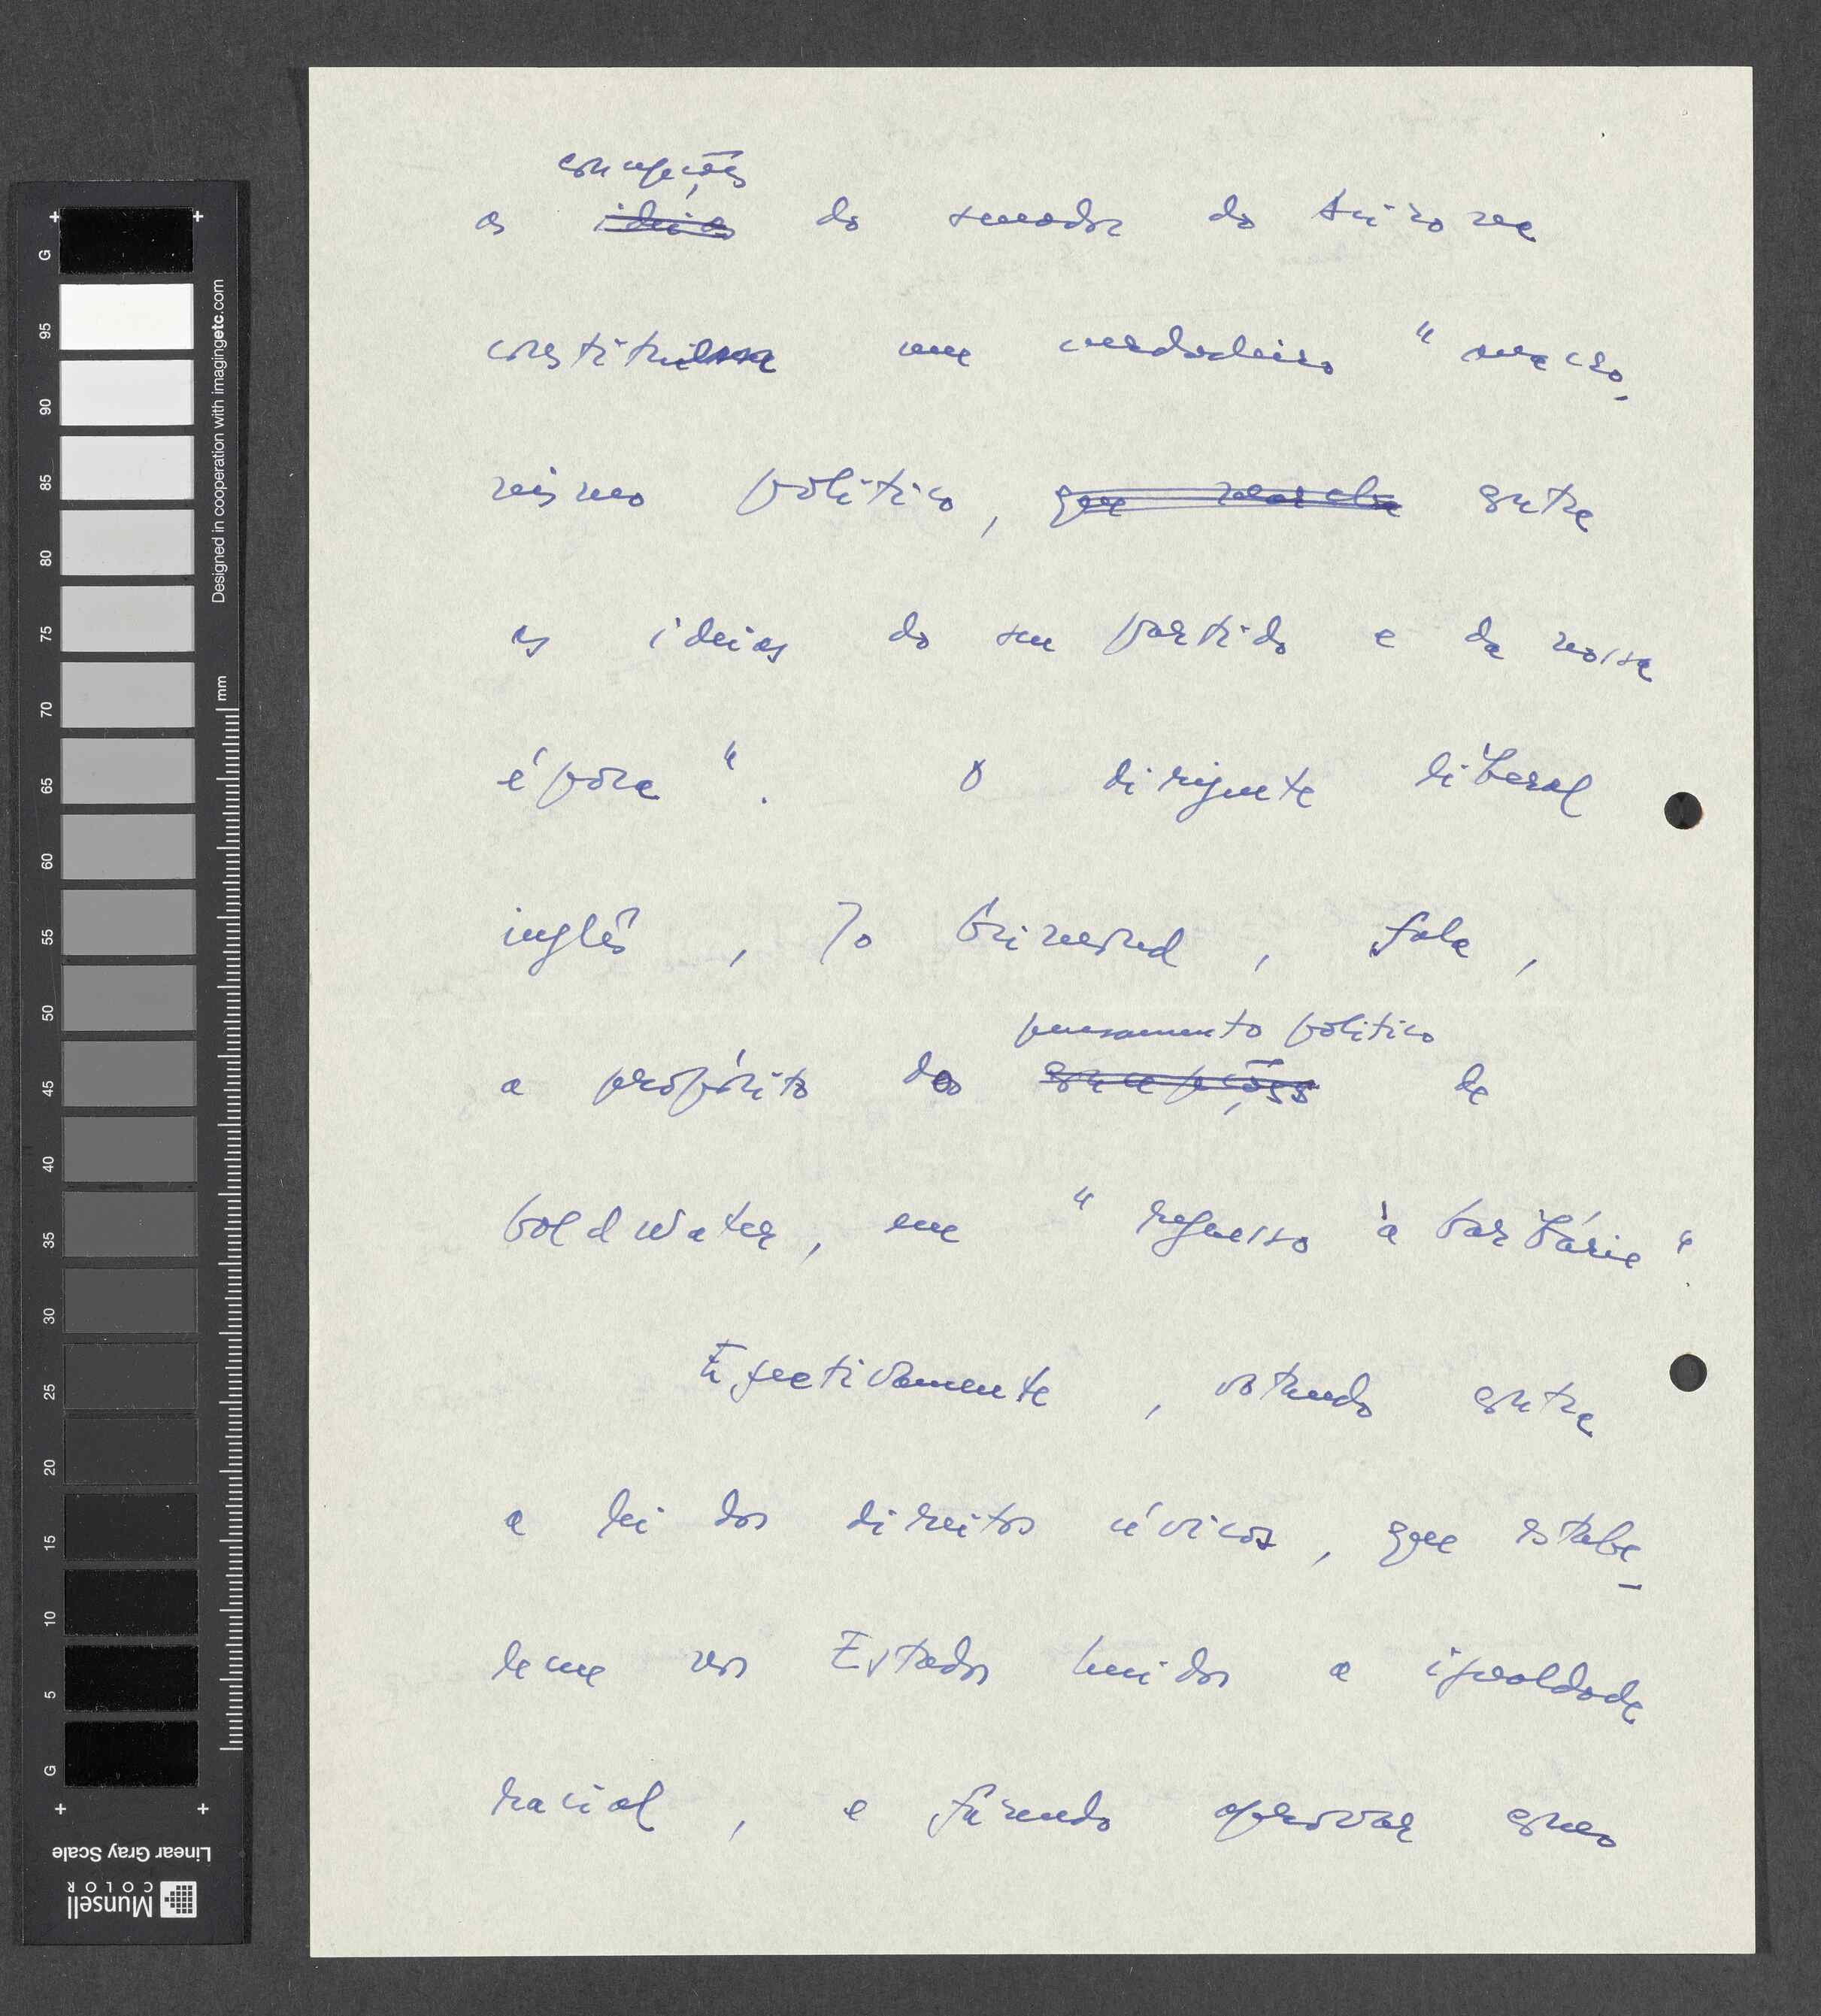 concepções
as ideias do senador do Arizona
constituem um verdadeiro "anacro-
nismo político, que marcha contra
as ideias do seu partido e da nossa
época". O dirigente liberal
inglês, Jo Grimond, fala,
pensamento político
a propósito do concepções de
Goldwater, em "regresso à barbárie".
Efectivamente, votando contra
a lei dos direitos cívicos, que estabe-
lece nos Estados Unidos a igualdade
racial, e fazendo aprovar como
G 95 90 85 80 75 70 65 60 55 50 45 40 35 30 25 20 15 10 5 G
Designed in cooperation with imagingetc.com
mm
Linear Gray Scale
Munsell
COLOR